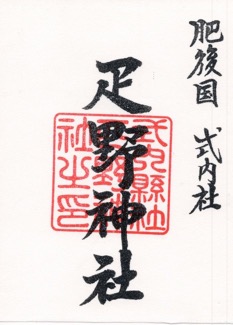 肥後国 式内社
疋野神社
式内縣社疋野神社之印